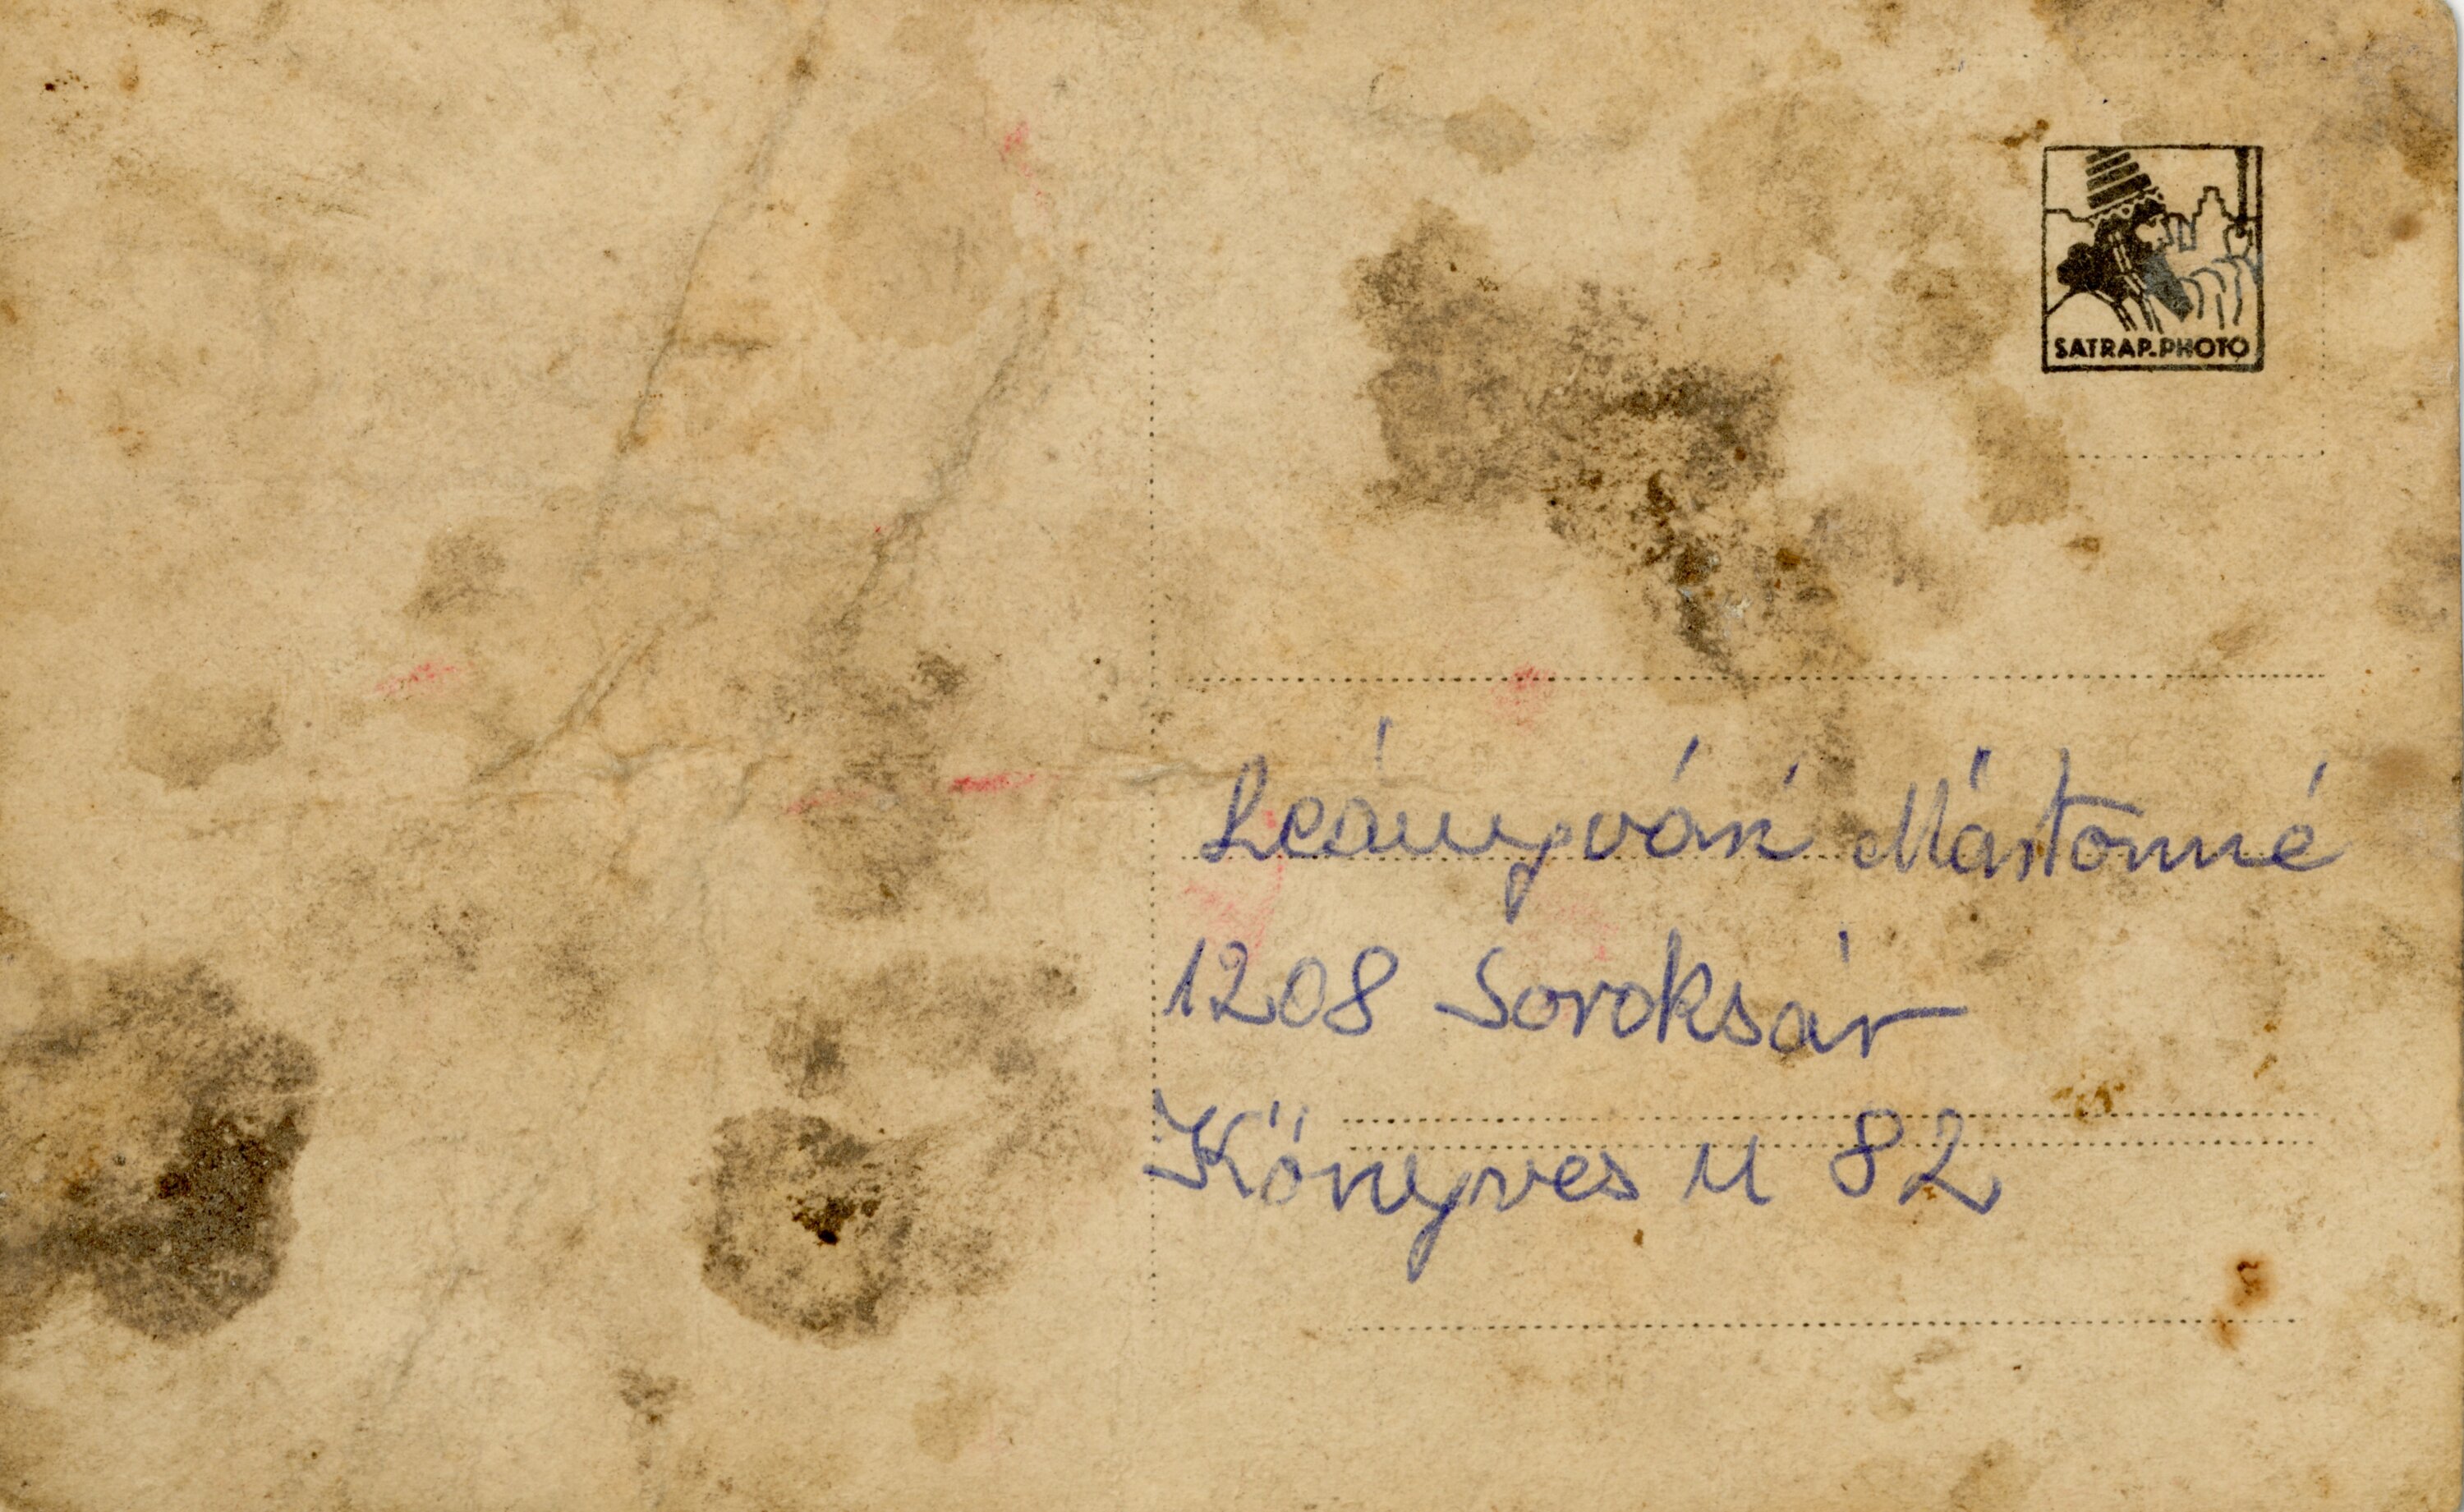 SATRAP-PHOTO
Leányvári Mártonné
1208 Soroksár
Könyves u 82